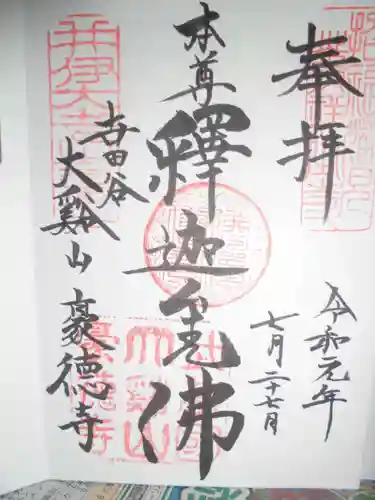 奉拝
令和元年
七月二十七日
本尊
釋迦无佛
世田谷
大谿山
豪徳寺